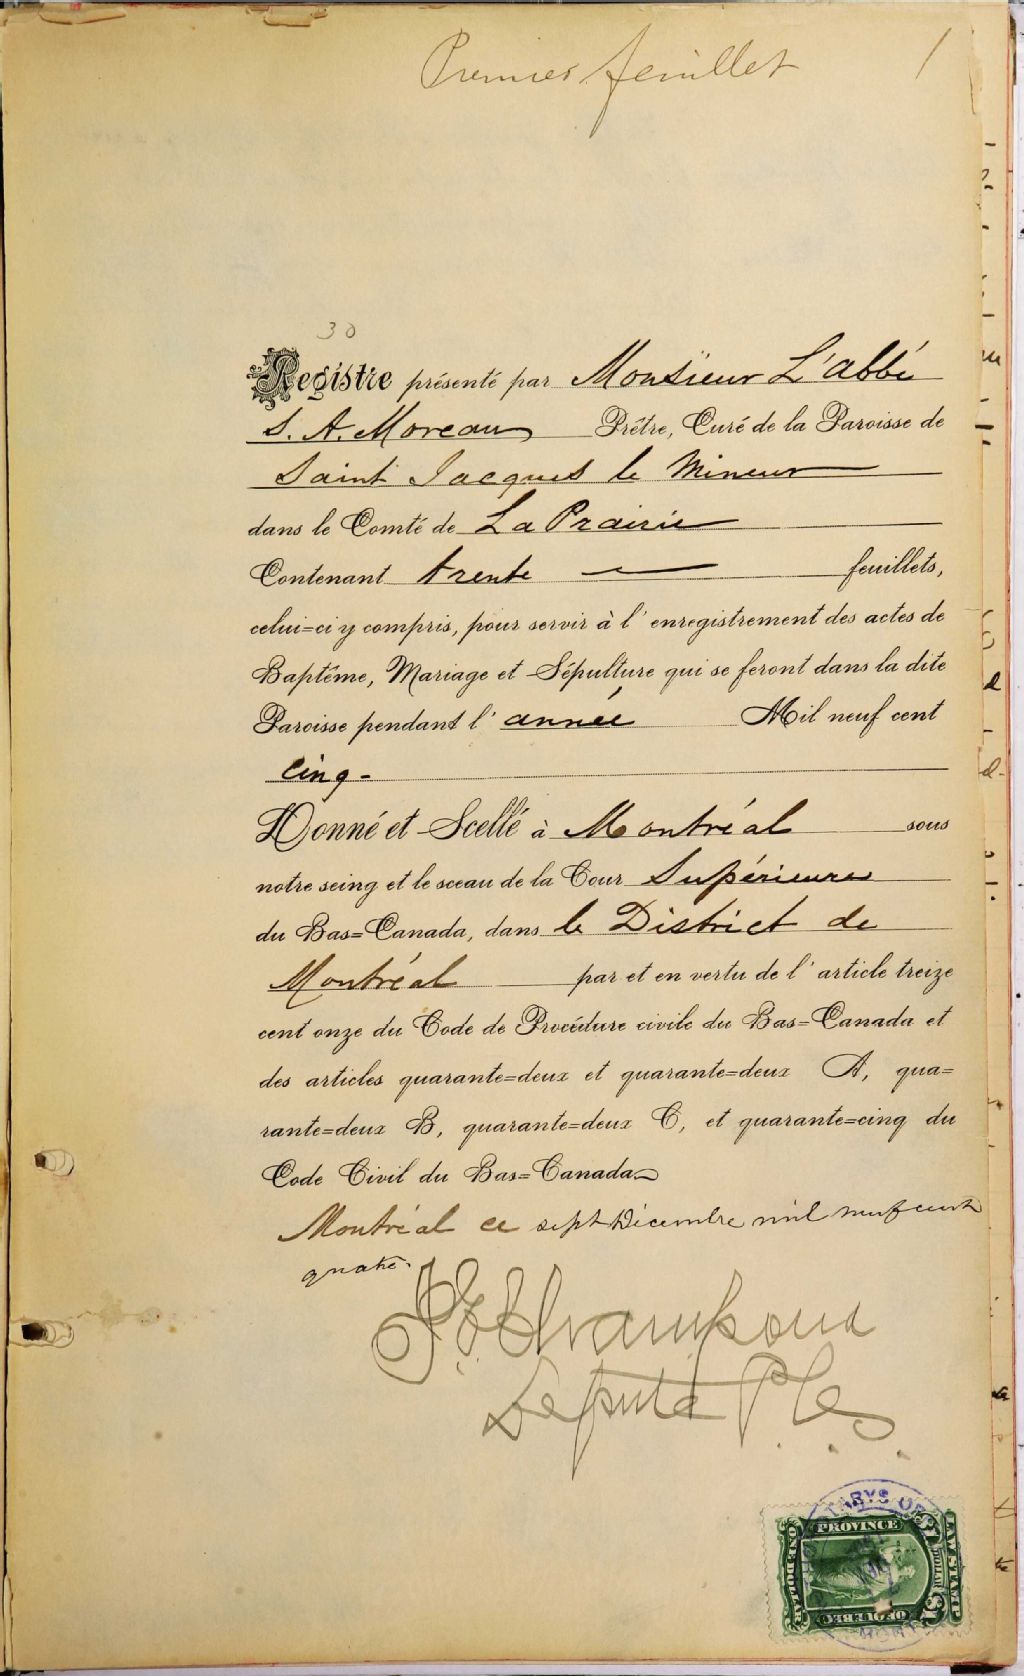 Premier feuillet 1
30
Registre présenté par Monsieur L'abbé
S. A. Moreau Prêtre, Curé de la Paroisse de
Saint Jacques le Mineur
dans le Comté de La Prairie
Contenant trente feuillets,
celui=ci y compris, pour servir à l'enregistrement des actes de
Baptême, Mariage et Sépulture qui se feront dans la dite
Paroisse pendant l'année Mil neuf cent
cinq-
Donné et Scellé à Montréal sous
notre seing et le sceau de la Cour Supérieure
du Bas=Canada, dans le District de
Montréal par et en vertu de l'article treize
cent onze du Code de Procédure civile du Bas=Canada et
des articles quarante=deux et quarante=deux A, qua=
rante=deux B, quarante=deux C, et quarante=cinq du
Code Civil du Bas=Canada
Montréal ce sept Décembre mil neuf cent
quatre.
Député P. C. S.
PROVINCE
LAW STAMP